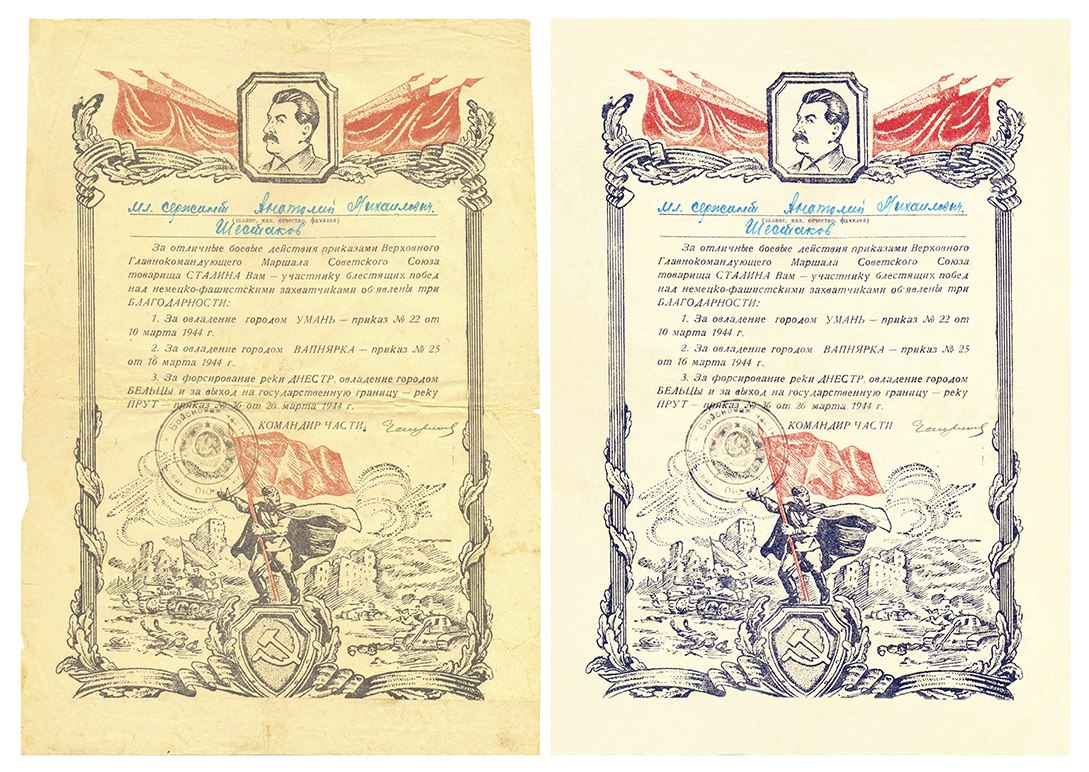 мл. сержант Анатолий Михаилович
(звание, имя, отчество, фамилия)
Шестаков
За отличные боевые действия приказами Верховного
Главнокомандующего Маршала Советского Союза
товарища СТАЛИНА Вам — участнику блестящих побед
над немецко-фашистскими захватчиками об‘явлены три
БЛАГОДАРНОСТИ:
1. За овладение городом УМАНЬ — приказ № 22 от
10 марта 1944 г.
2. За овладение городом ВАПНЯРКА — приказ № 25
от 16 марта 1944 г.
3. За форсирование реки ДНЕСТР, овладение городом
БЕЛЬЦЫ и за выход на государственную границу — реку
ПРУТ — приказ № 36 от 26 марта 1944 г.
КОМАНДИР ЧАСТИ
Войсковая часть
мл. сержант Анатолий Михаилович.
(звание, имя, отчество, фамилия)
Шестаков
За отличные боевые действия приказами Верховного
Главнокомандующего Маршала Советского Союза
товарища СТАЛИНА Вам — участнику блестящих побед
над немецко-фашистскими захватчиками об‘явлены три
БЛАГОДАРНОСТИ:
1. За овладение городом УМАНЬ — приказ № 22 от
10 марта 1944 г.
2. За овладение городом ВАПНЯРКА — приказ № 25
от 16 марта 1944 г.
3. За форсирование реки ДНЕСТР, овладение городом
БЕЛЬЦЫ и за выход на государственную границу — реку
ПРУТ — приказ № 36 от 26 марта 1944 г.
КОМАНДИР ЧАСТИ
Войсковая часть